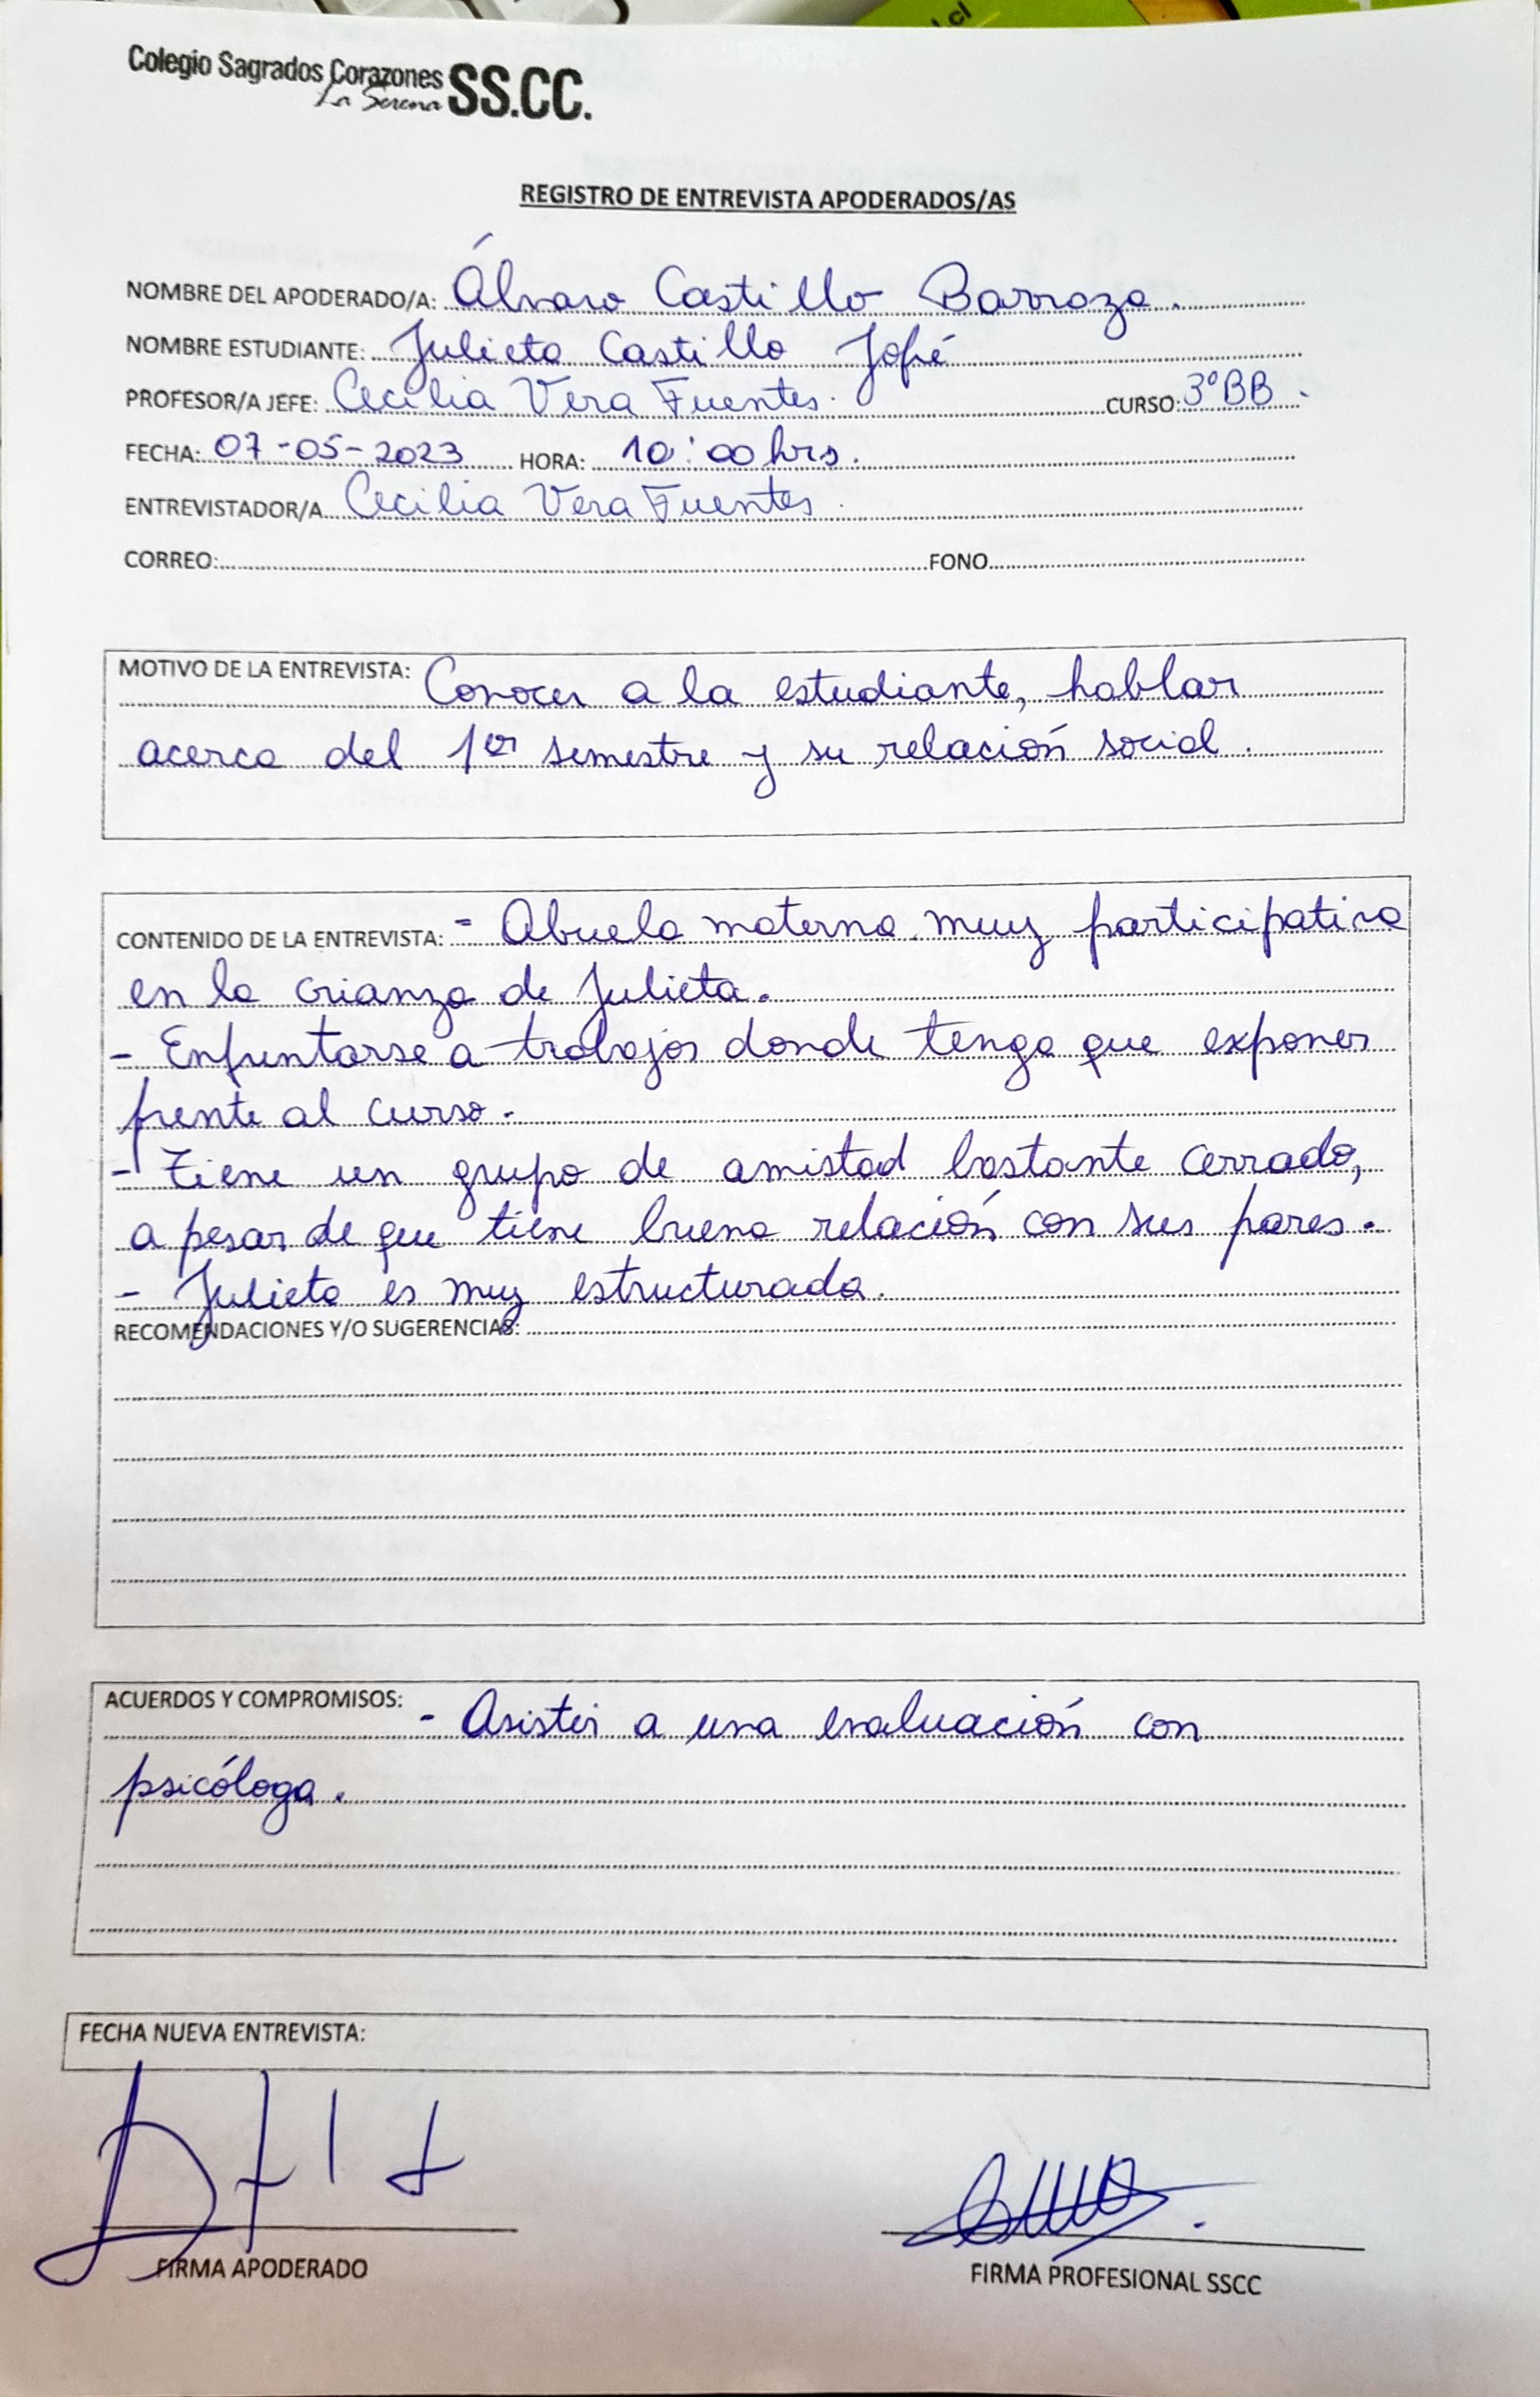 .cl
Colegio Sagrados Corazones SS.CC.
La Serena
REGISTRO DE ENTREVISTA APODERADOS/AS
NOMBRE DEL APODERADO/A: Álvaro Castillo Barroza.
NOMBRE ESTUDIANTE: Julieta Castillo Jofé
PROFESOR/A JEFE: Cecilia Vera Fuentes. CURSO: 3°BB.
FECHA: 07-05-2023 HORA: 10:00 hrs.
ENTREVISTADOR/A Cecilia Vera Fuentes.
CORREO: FONO
MOTIVO DE LA ENTREVISTA: Conocer a la estudiante, hablar
acerca del 1er semestre y su relación social.
CONTENIDO DE LA ENTREVISTA: - Abuela materna muy participativa
en la crianza de Julieta.
- Enfrentarse a trabajos donde tenga que exponer
frente al curso.
- Tiene un grupo de amistad bastante cerrado,
a pesar de que tiene buena relación con sus pares.
- Julieta es muy estructurada.
RECOMENDACIONES Y/O SUGERENCIAS:
ACUERDOS Y COMPROMISOS: - Asistir a una evaluación con
psicóloga.
FECHA NUEVA ENTREVISTA:
FIRMA APODERADO FIRMA PROFESIONAL SSCC